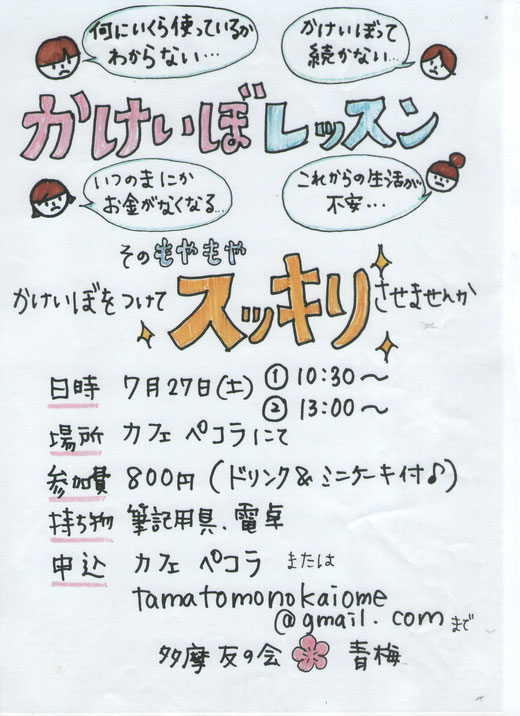 何にいくら使っているか
わからない…
かけいぼって
続かない…
かけいぼレッスン
いつのまにか
お金がなくなる…
これからの生活が
不安…
そのもやもや
かけいぼをつけてスッキリさせませんか
日時 7月27日(土) ① 10:30〜
② 13:00〜
場所 カフェ ペコラにて
参加費 800円(ドリンク&ミニケーキ付♪)
持ち物 筆記用具、電卓
申込 カフェ ペコラ または
tamatomonokaiome
@gmail.com まで
多摩友の会 青梅